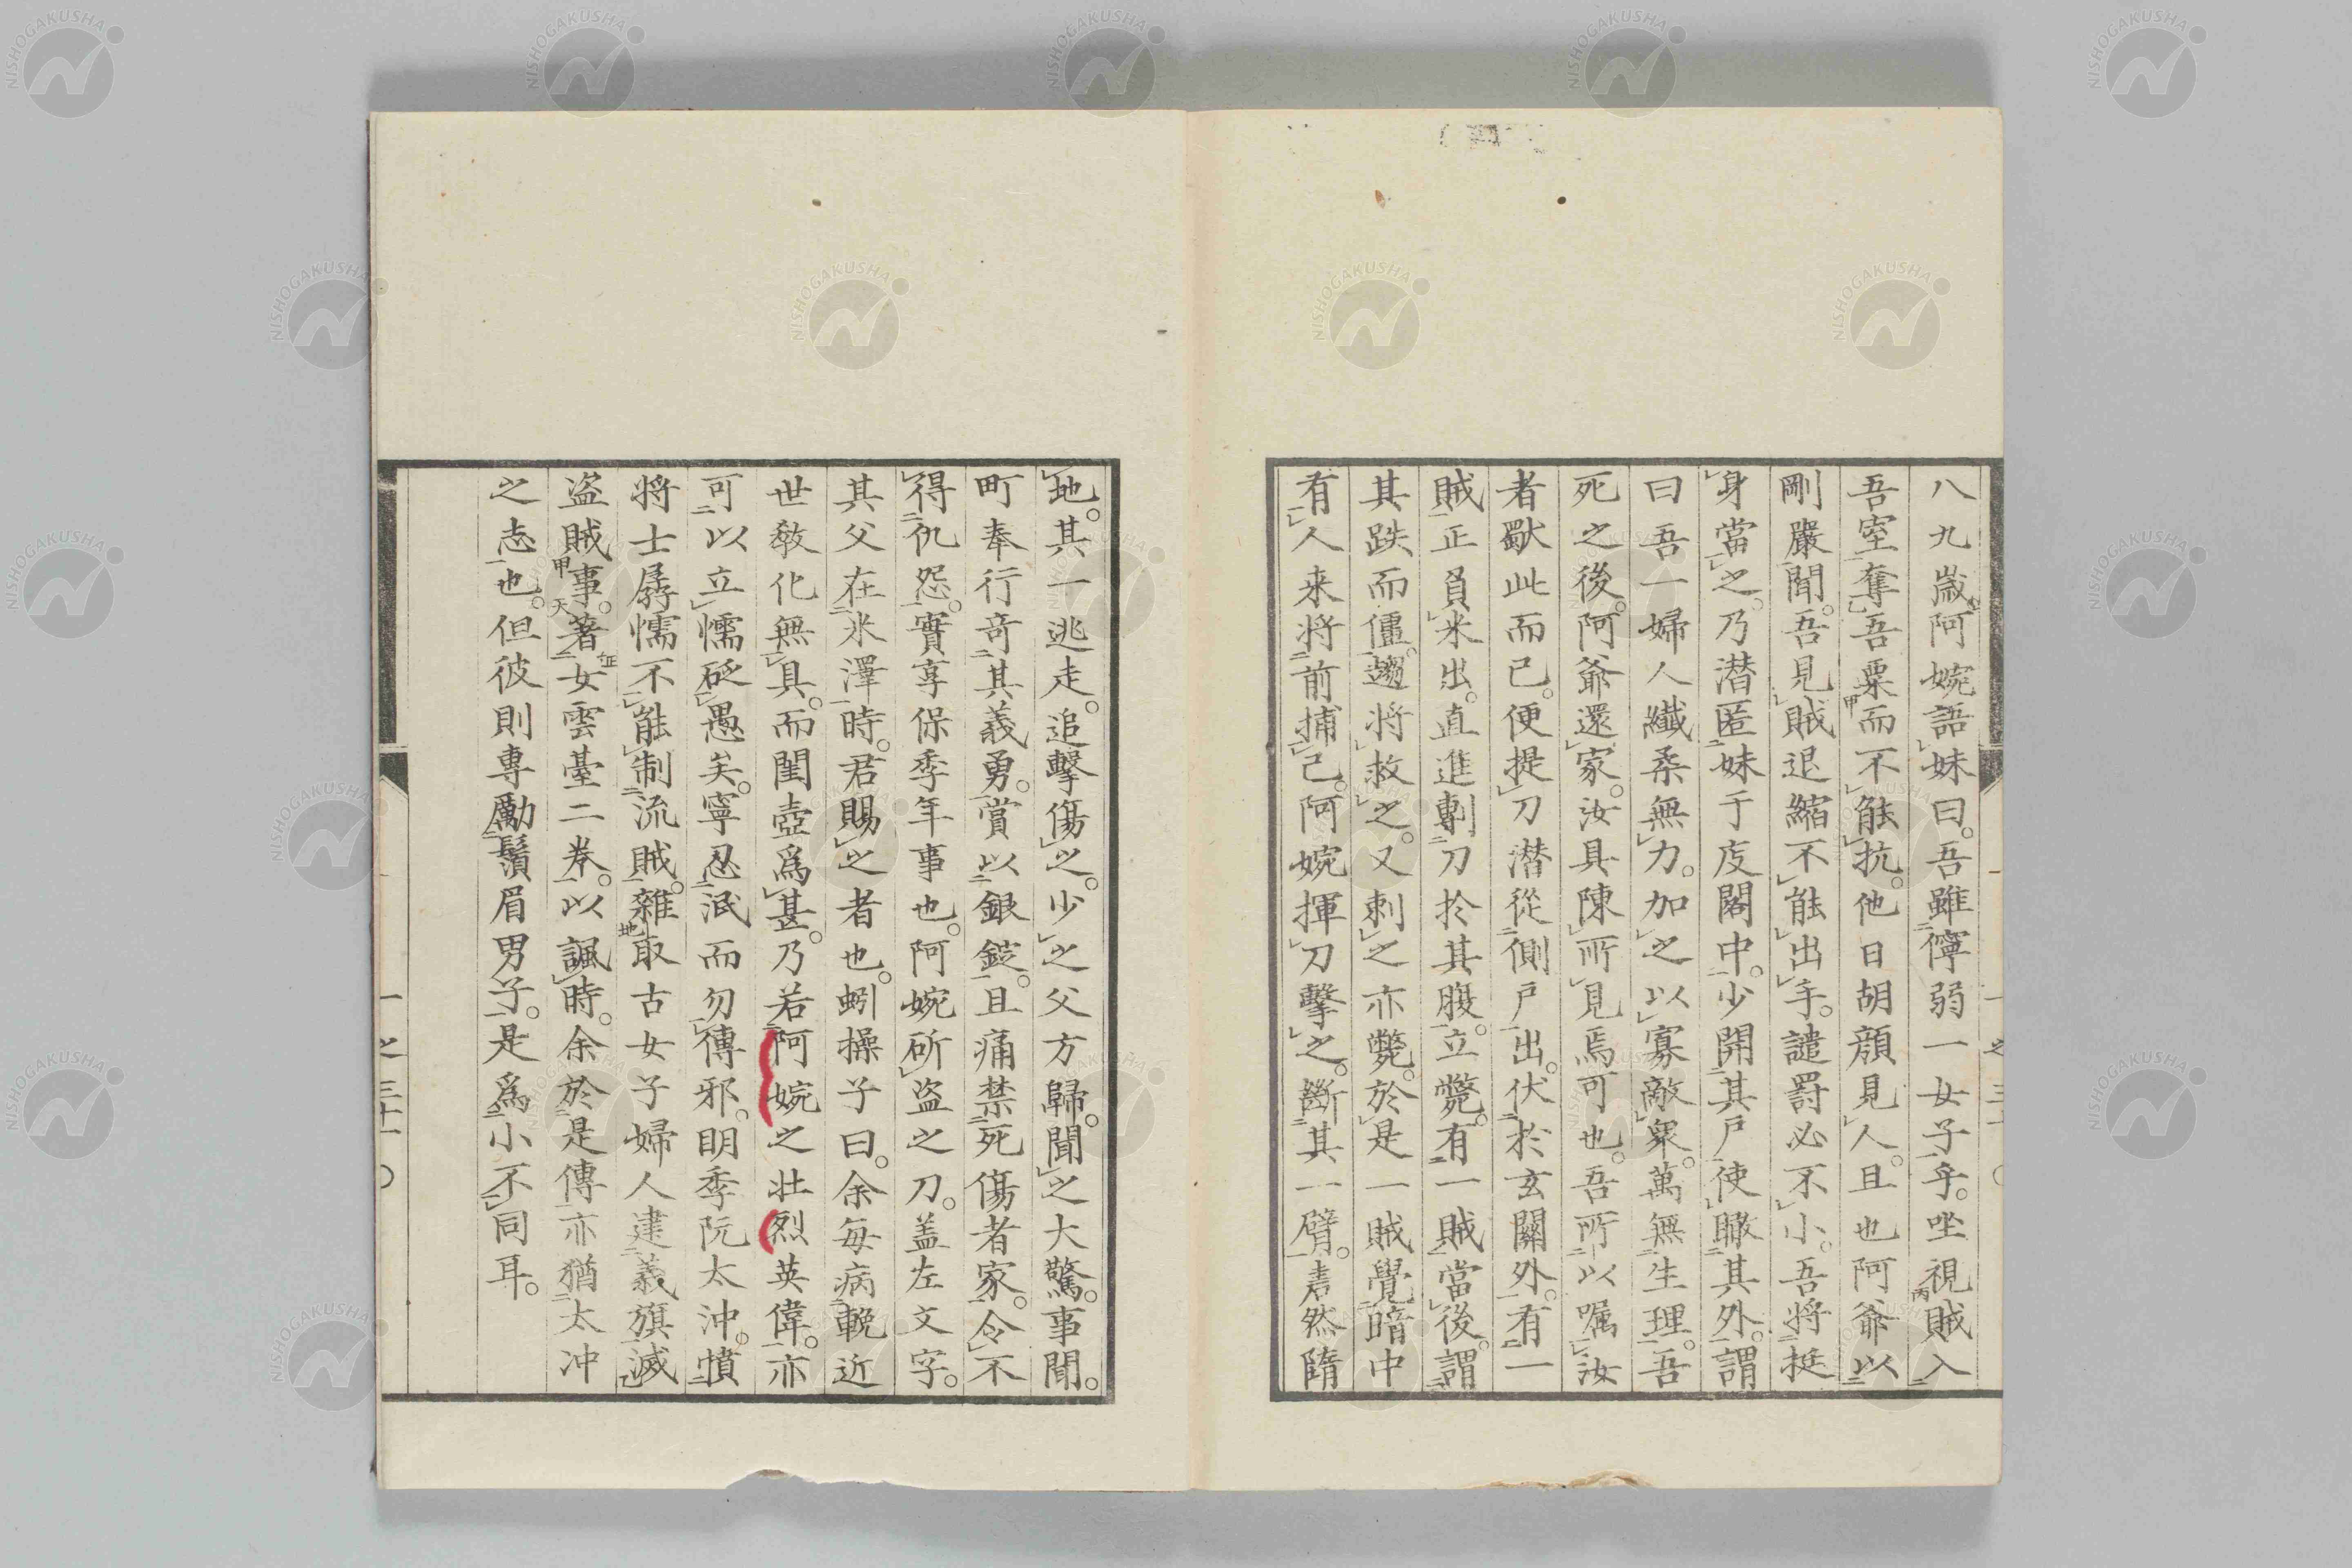 八九歲阿婉語妹曰。吾雖儜弱一女子乎。坐視賊入
吾室奪吾粟而不能抗。他日胡顔見人。且也阿爺以
剛嚴聞。吾見賊退縮不能出手。譴罰必不小。吾將挺
身當之。乃潛匿妹于庋閣中。少開其戶使瞰其外。謂
曰吾一婦人纖柔無力。加之以寡敵衆。萬無生理。吾
死之後。阿爺還家。汝具陳所見焉可也。吾所以嘱汝
者獸此而已。便提刀潛從側戶出。伏於玄關外。有一
賊正負米出。直進剚刀於其腹。立斃。有一賊當後。謂
其跌而僵。趨將救之。又刺之亦斃。於是一賊覺暗中
有人来將前捕己。阿婉揮刀擊之。斷其一臂。砉然墮
地。其一逃走。追擊傷之。少之父方歸。聞之大驚。事聞。
町奉行奇其義勇。賞以銀錠。且痛禁死傷者家。令不
得仇怨。實享保季年事也。阿婉斫盜之刀。盖左文字。
其父在氷澤時。君賜之者也。蚓操子曰。余毎病輓近
世敎化無具。而閨壼爲甚。乃若阿婉之壮烈英偉。亦
可以立懦砭愚矣。寧忍泯而勿傳邪。明季阮太沖。憤
將士孱懦不能制流賊。雜取古女子婦人建義旗滅
盜賊事。著女雲臺二卷。以諷時。余於是傳亦猶太冲
之志也。但彼則專勵鬚眉男子。是爲小不同耳。
一之三十
一之三十一
NISHOGAKUSHA